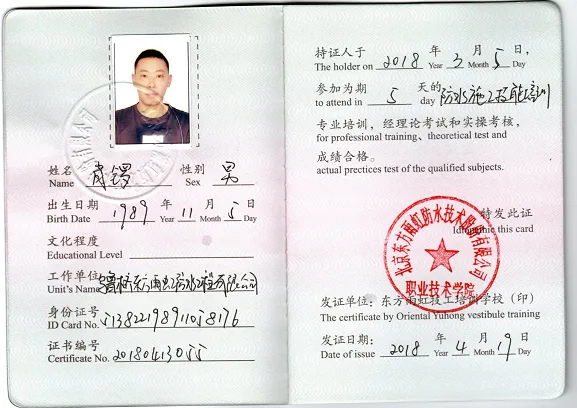 姓名 肖锣 性别 男
Name Sex
出生日期 1989 年 11 月 5 日
Birth Date Year Month Day
文化程度
Educational Level
工作单位 东方雨虹防水工程有限公司
Unit's Name
身份证号
ID Card No. 513822198911058176
证书编号
Certificate No. 20180413055
持证人于 2018 年 3 月 5 日,
The holder on Year Month Day
参加为期 5 天的 防水施工技能培训
to attend in day
专业培训，经理论考试和实操考核，
for professional training, theoretical test and
成绩合格。
actual prectices test of the qualified subjects.
特发此证
this card
北京东方雨虹防水技术股份有限公司
职业技术学院
发证单位：东方雨虹技工培训学校（印）
The certificate by Oriental Yuhong vestibule training
发证日期： 2018 年 4 月 19 日
Date of issue Year Month Day